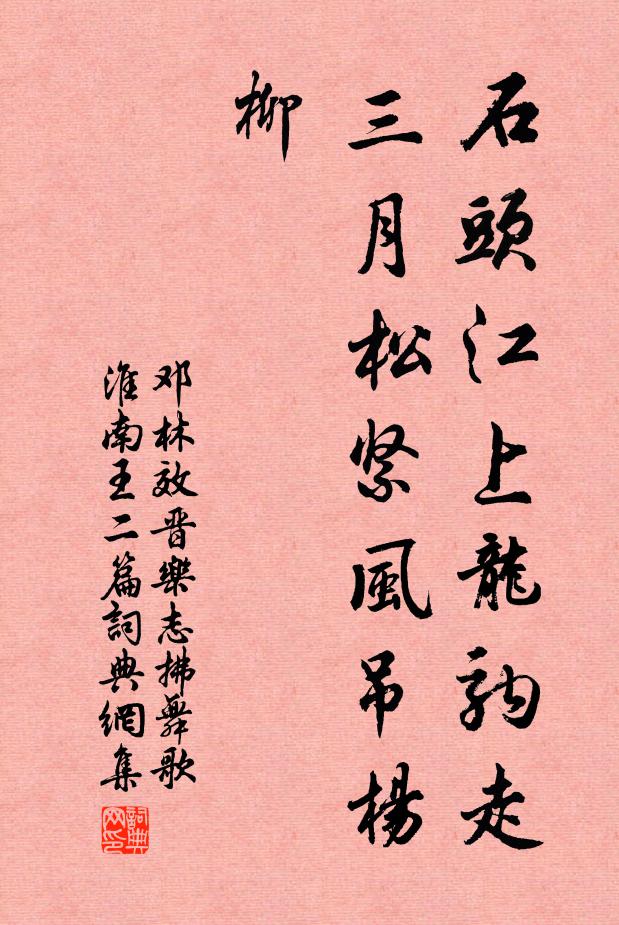 石頭江上龍駒走
三月松紧風吊楊
柳
邓林效晋樂志拂舞歌
淮南王二篇詞典網集
詞典
网印